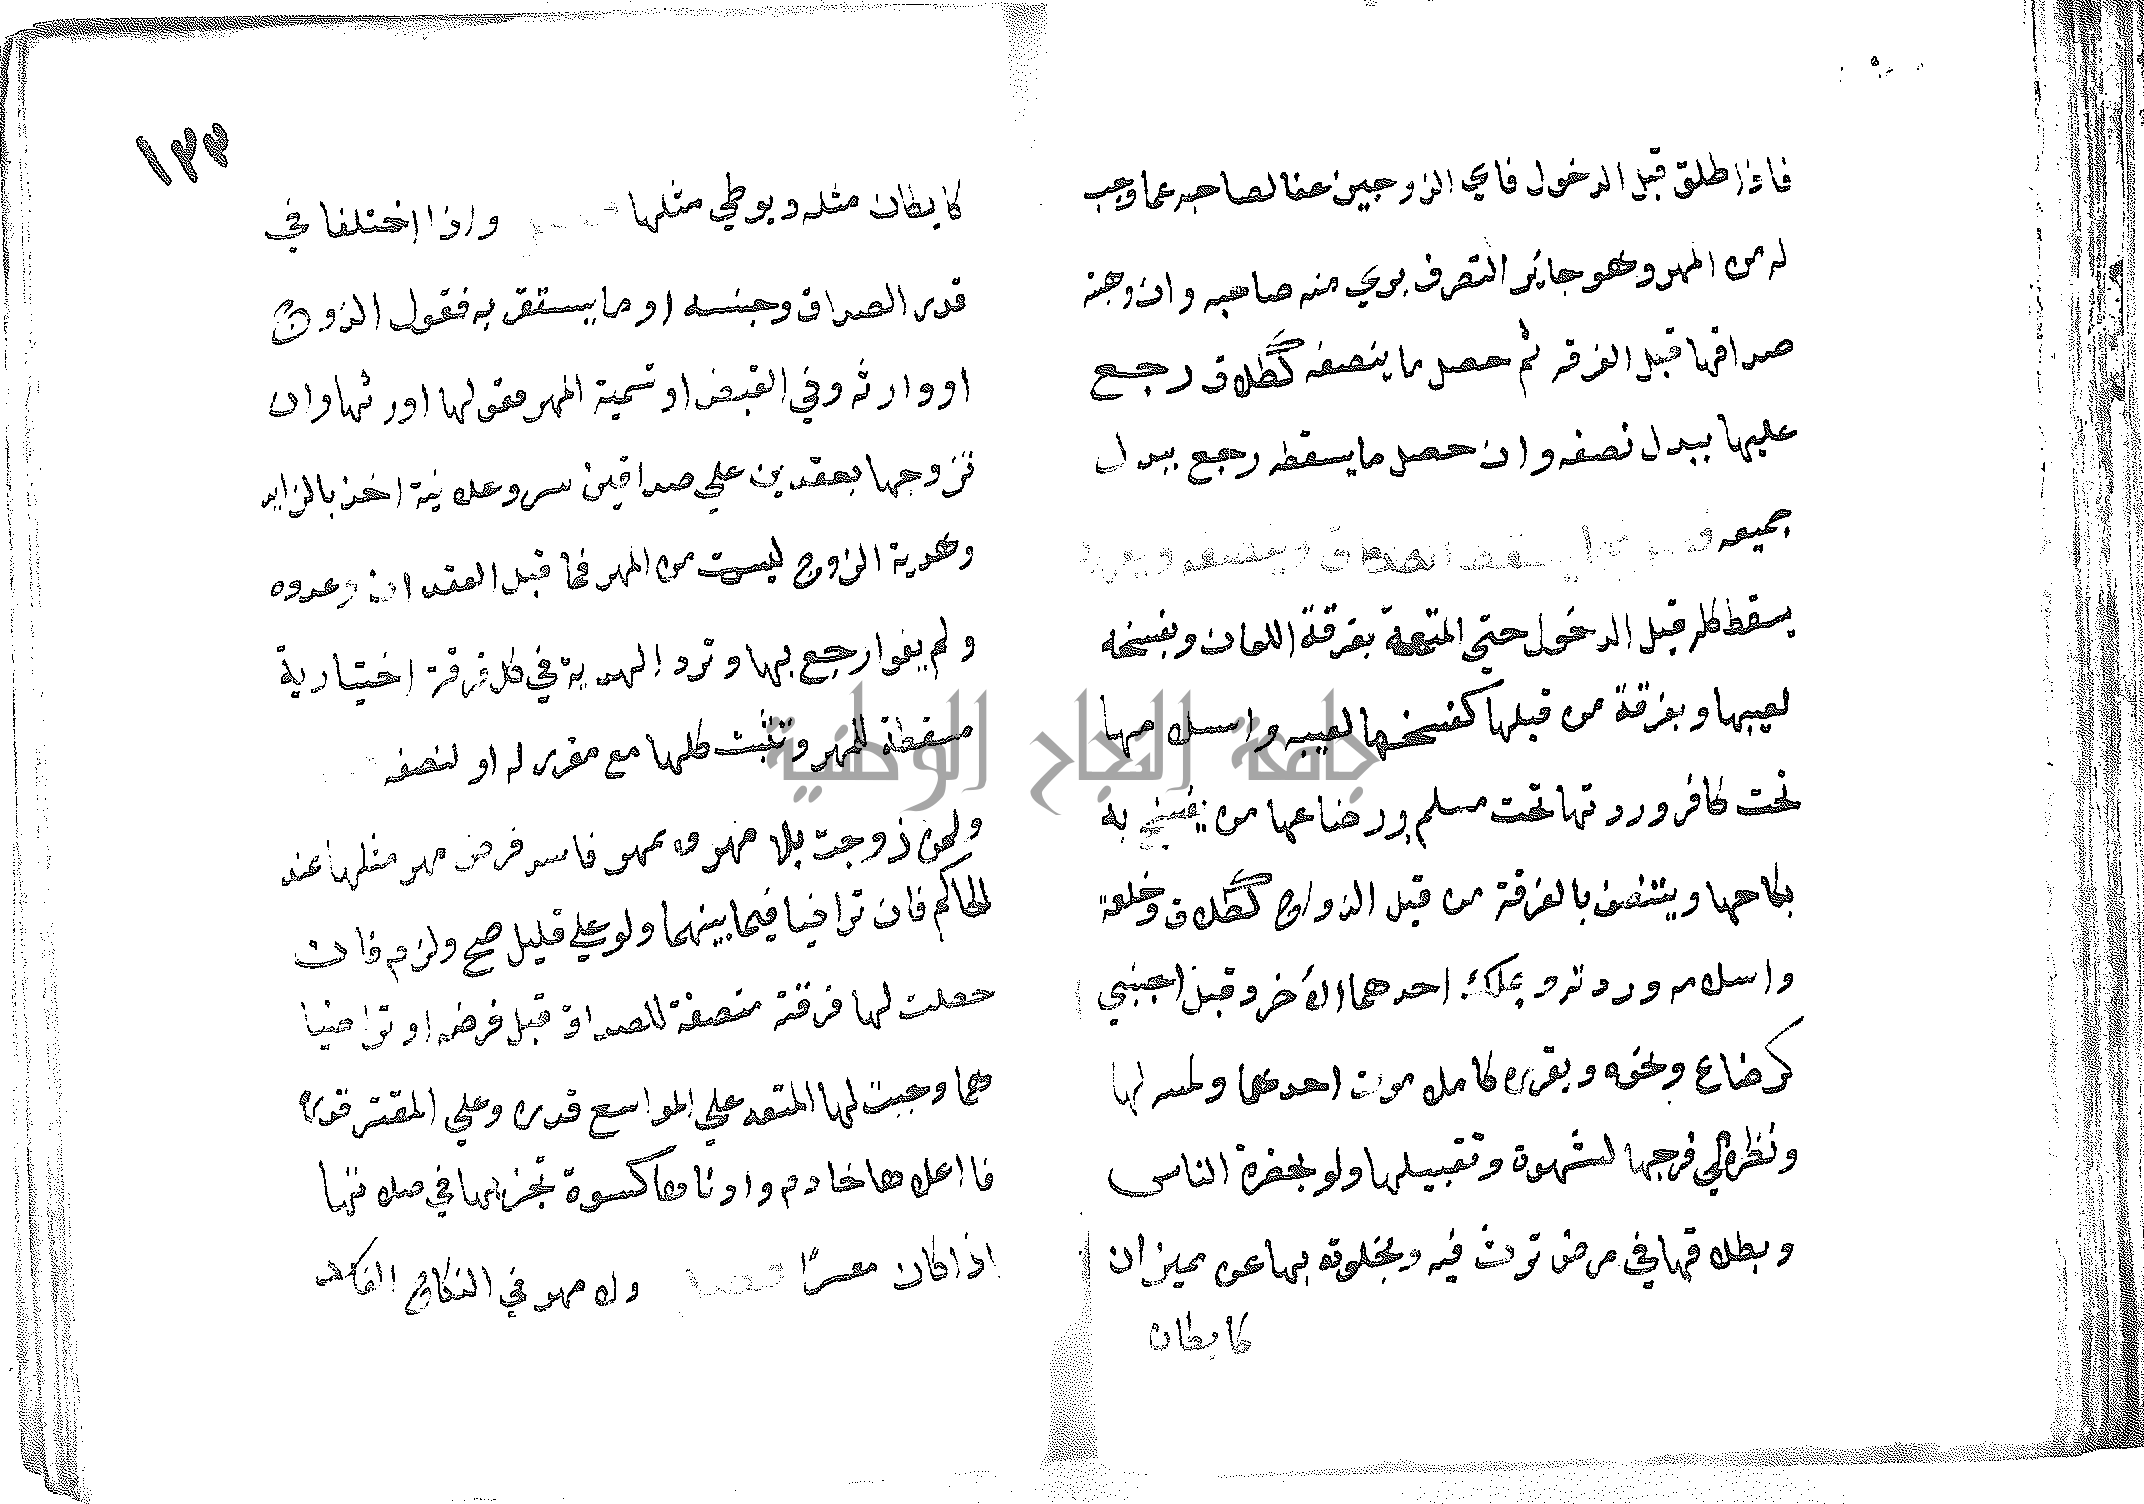 فاذا طلق قبل الدخول فاي الزوجين عفا لصاحبه عما وجب
له من المهر وهو جايز التصرف بري منه صاحبه وان وهبته
صداقها قبل الفرقه ثم حصل ما ينصفه كطلاق رجع
عليها ببدل نصفه وان حصل ما يسقطه رجع ببدل
جميعه فصل فيما يسقط الصداق وينصفه ويقرره
يسقط كله قبل الدخول حتي المتعة بفرقة اللعان وبفسخه
لعيبها وبفرقة من قبلها كفسخها لعيبه واسلامها
تحت كافر وردتها تحت مسلم ورضاعها من ينفسخ به
نكاحها ويتنصف بالفرقة من قبل الزواج كطلاق وخلعه
واسلامه وردته وبملك احدهما الآخر وقبل اجنبي
كرضاع ونحوه ويقرره كاملا موت احدهما ولمسه لها
ونظره الي فرجها لشهوة وتقبيلها ولو بحضرة الناس
وبطلاقها في مرض ترث فيه وبخلوته بها عن مميز ان
كا يطان
١٣٣
كا يطان مثله ويوطي مثلها فصل واذا اختلفا في
قدر الصداق وجنسه او ما يستقر به فقول الزوج
او وارثه وفي القبض او تسمية المهر فقولها او رثها وان
تزوجها بعقدين علي صداقين سر وعلانية اخذ بالزايد
وهدية الزوج ليست من المهر فما قبل العقد ان وعدوه
ولم يفوا رجع بها وترد الهدية في كل فرقة اختيارية
مسقطة للمهر وتثبت كلها مع مقرر له او لنصفه
ولمن زوجت بلا مهر بمهر فاسد فرض مهر مثلها عند
الحاكم فان تراضيا فيما بينهما ولو علي قليل صح ولزم فان
حصلت لها فرقة منصفة للصداق قبل فرضه او تراضيا
هما وجبت لها المتعه علي المواسع قدره وعلي المقتر قدره
فا اعلاها خادم وادناها كسوة تجزيها في صلاتها
اذا كان معسرًا فصل ولا مهر في النكاح الفاسد